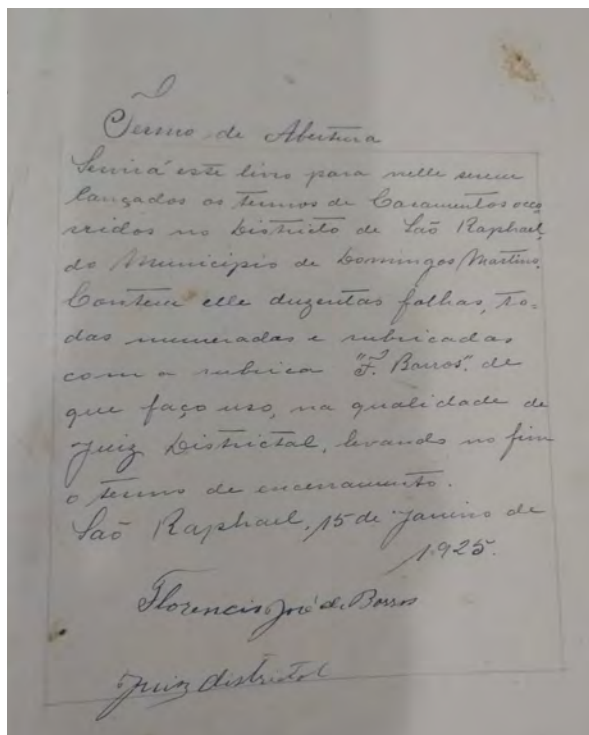 Termo de Abertura
Servirá este livro para nelle serem
lançados os termos de Casamentos ocor
ridos no Districto de São Raphael,
do Municipio de Domingos Martins.
Contem elle duzentas folhas, to-
das numeradas e rubricadas
com a rubrica "F. Barros", de
que faço uso, na qualidade de
Juiz Districtal, levando no fim
o termo de encerramento.
São Raphael, 15 de Janeiro de
1925.
Florencio José de Barros
Juiz districtal